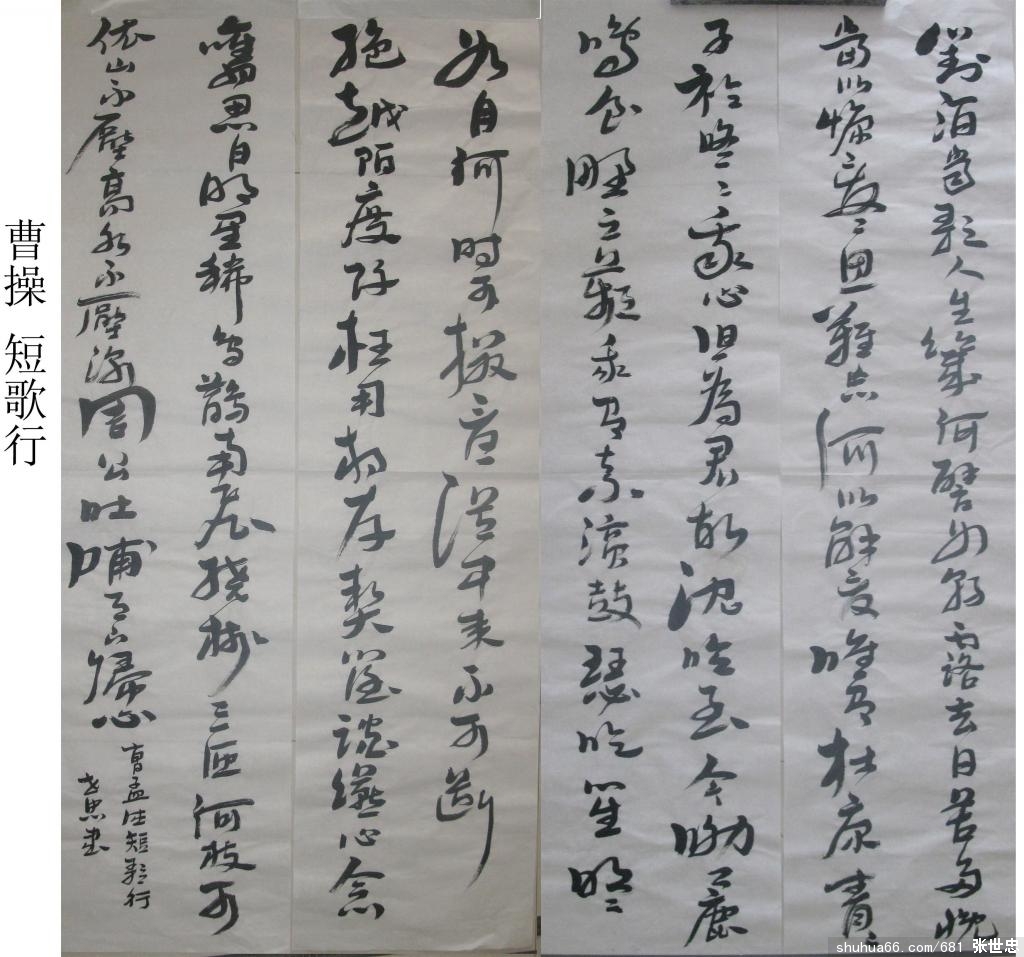 對酒當歌人生幾何譬如朝露去日苦多慨
當以慷〻憂〻思難忘何以解憂唯有杜康青〻
子衿悠〻我心但為君故沈吟至今呦〻鹿
鳴食野之蘋我有嘉賓鼓瑟吹笙明〻
如月何時可掇憂從中來不可斷
絕越陌度阡枉用相存契闊談讌心念
舊恩月明星稀烏鵲南飛繞樹三匝何枝可
依山不厭高水不厭深周公吐哺天下歸心
曹孟德短歌行
世忠書
曹操 短歌行
shuhua66.com/681 张世忠